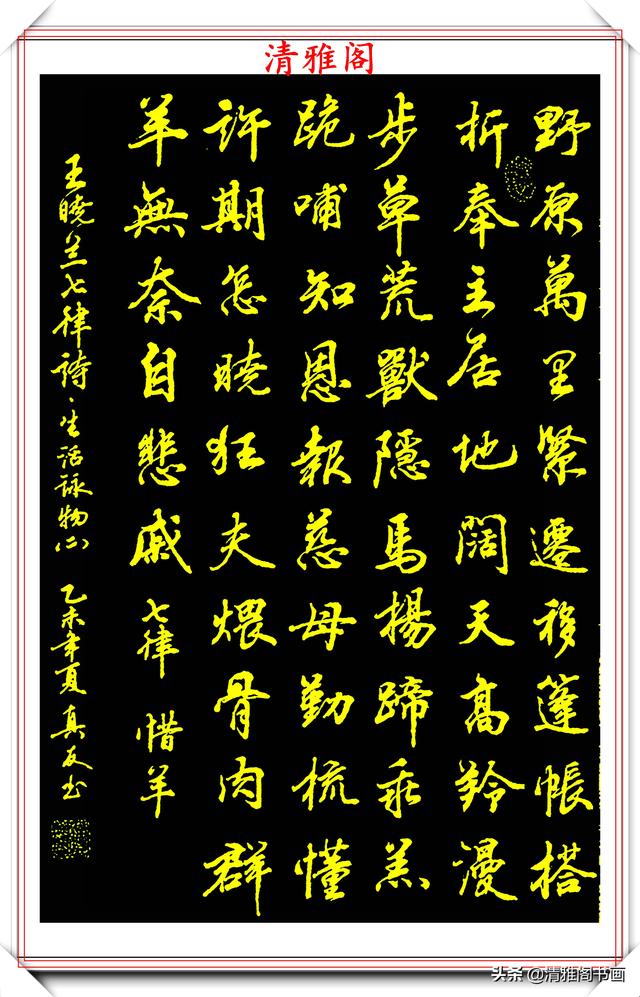 清雅阁
野原萬里緊遷移篷帳搭
折奉主居地闊天高羚漫
步草荒獸隱馬揚蹄乖羔
跪哺知恩報慈母勤梳懂
許期怎曉狂夫煨骨肉群
羊無奈自悲戚 七律 惜羊
王曉兰七律詩、生活詠物(二) 乙未年夏 真友书
头条@清雅阁书画